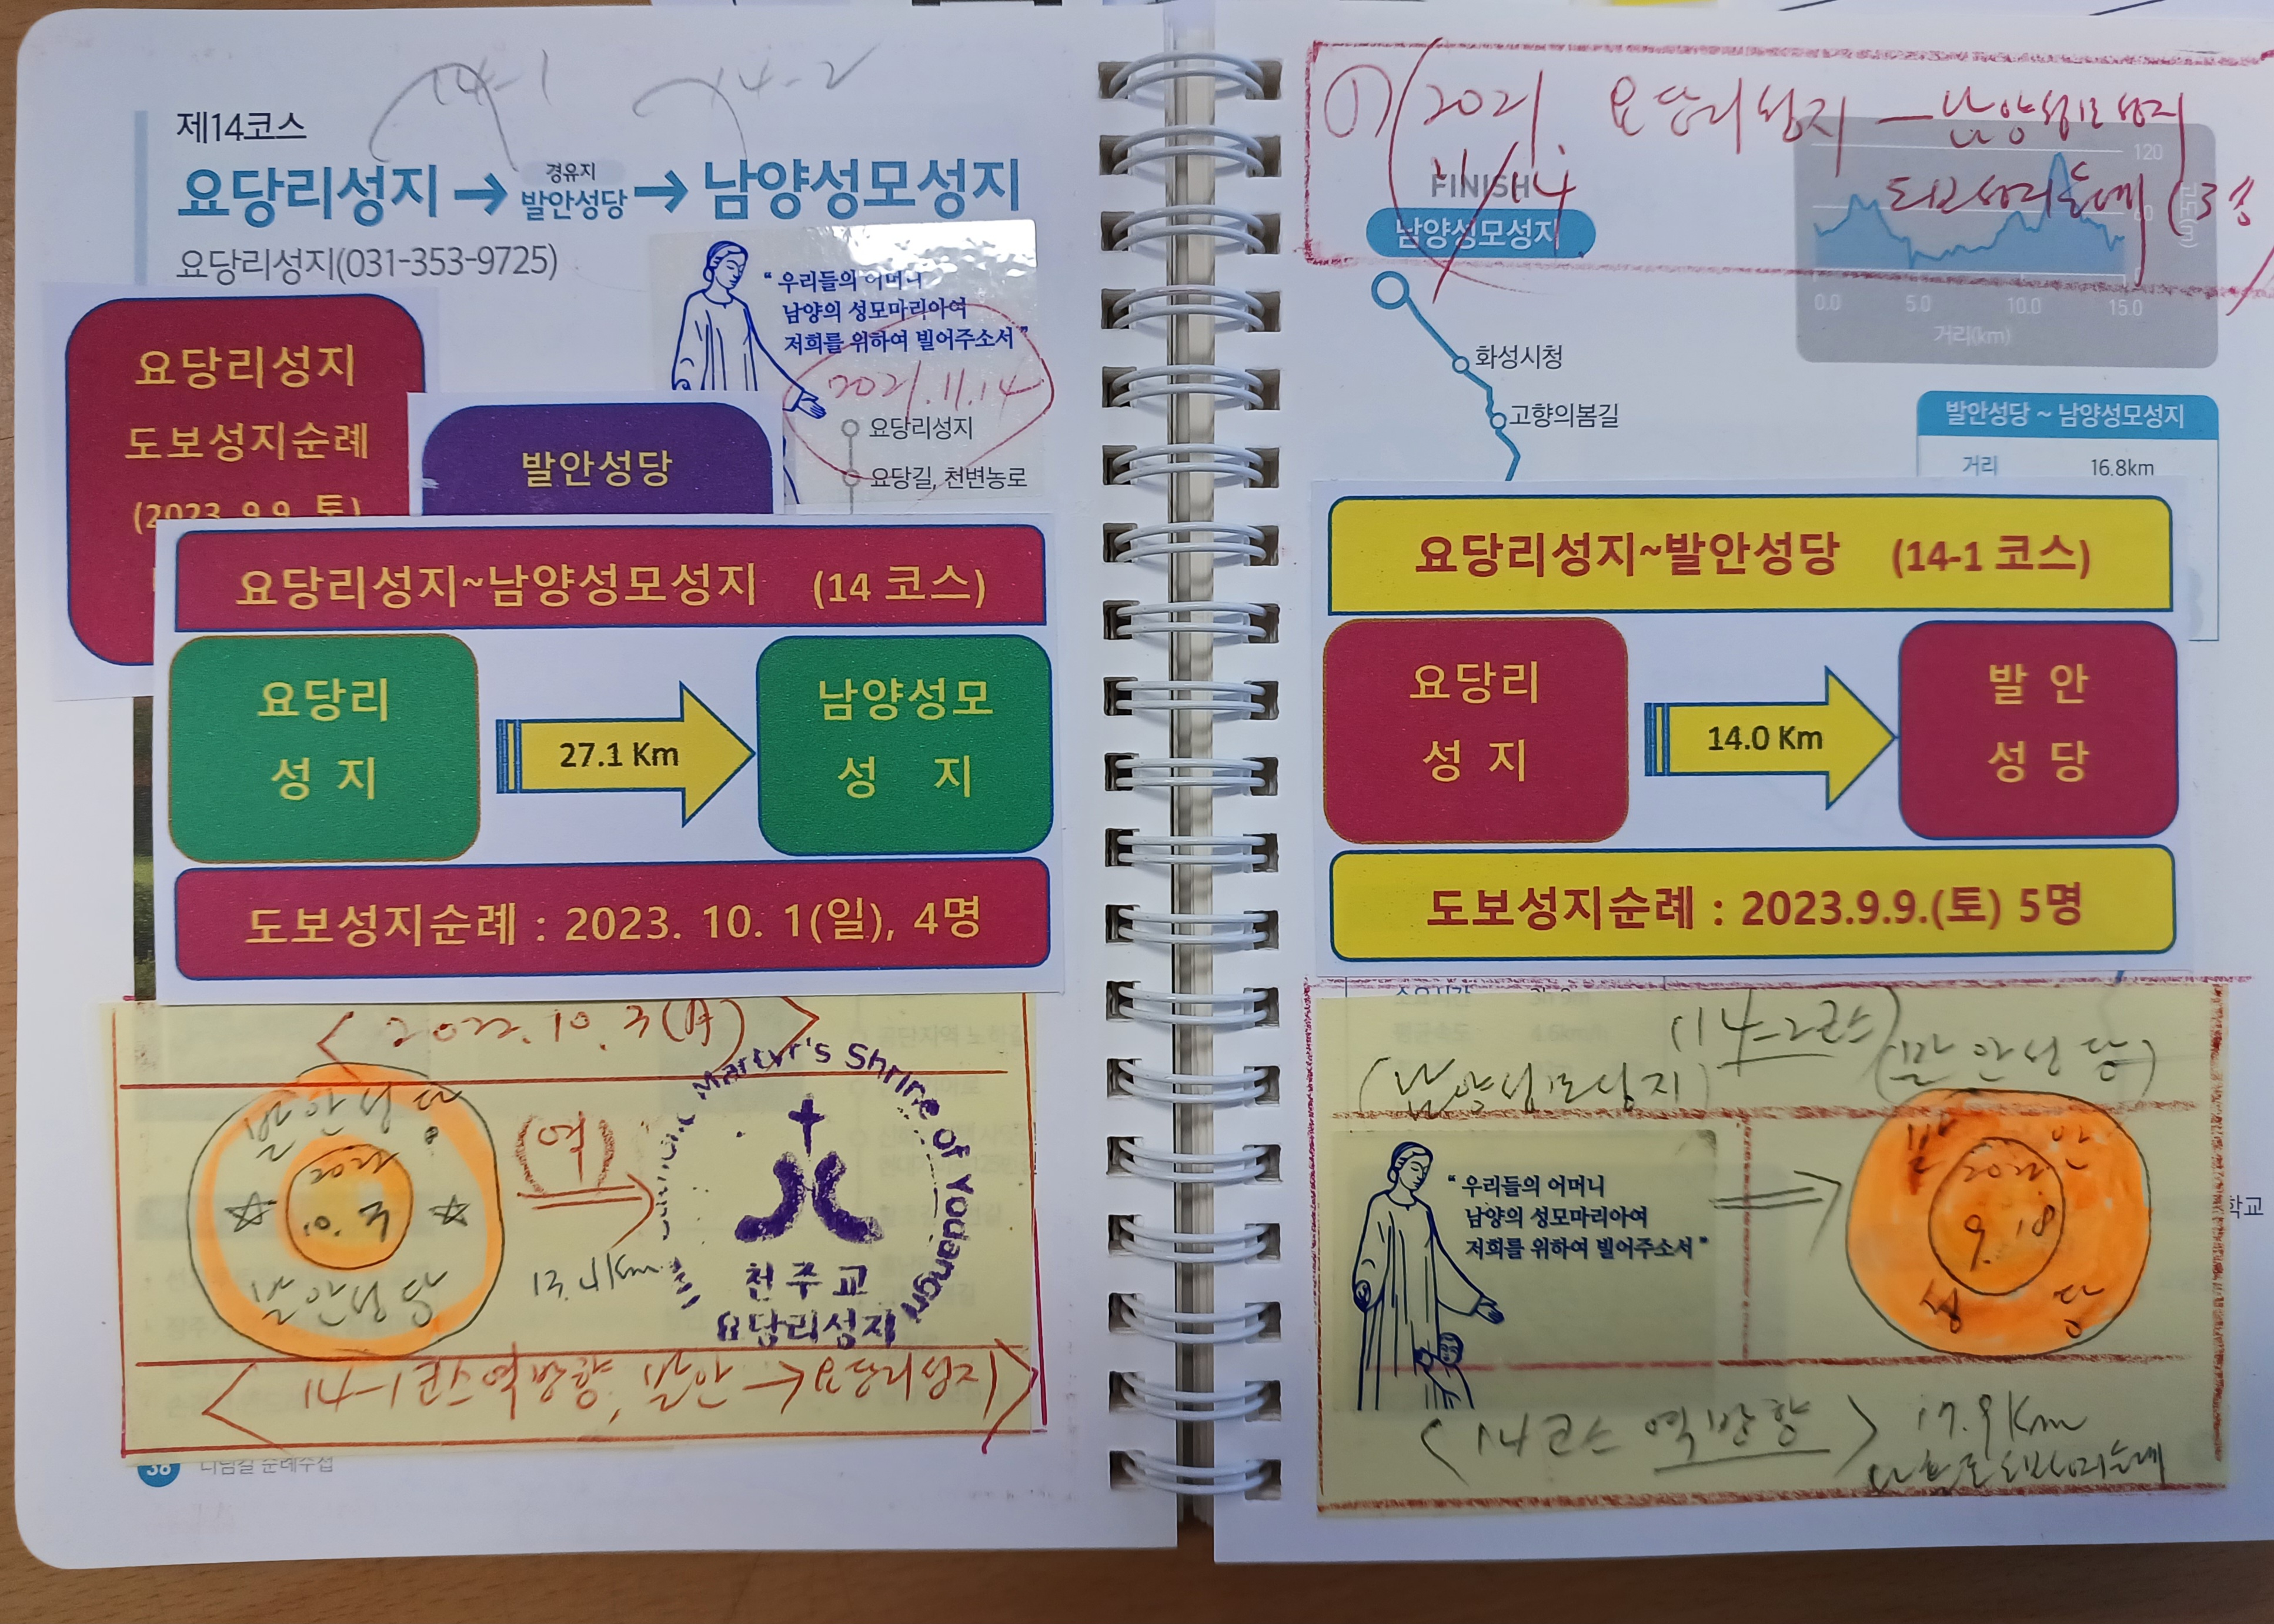 14-1
14-2
제14코스
요당리성지 → 경유지 발안성당 → 남양성모성지
요당리성지(031-353-9725)
“ 우리들의 어머니
남양의 성모마리아여
저희를 위하여 빌어주소서 ”
2021.11.14
요당리성지
요당길, 천변농로
요당리성지
도보성지순례
(2023. 9.9. 토)
발안성당
요당리성지~남양성모성지 (14 코스)
요당리
성 지
27.1 Km
남양성모
성 지
도보성지순례 : 2023. 10. 1(일), 4명
< 2022. 10. 3(月) >
발안성당
2022
10. 3
발안성당
(역)
13.4Km
Martyr's Shrine of Yodangri
천주교
요당리성지
< 14-1코스 역방향, 발안 → 요당리성지 >
38 디딤길 순례수첩
① 2021. 요당리성지 — 남양성모성지
11/14
도보성지순례 (3명
FINISH
남양성모성지
120
60
0
0.0 5.0 10.0 15.0
거리(km)
화성시청
고향의봄길
발안성당 ~ 남양성모성지
거리 16.8km
요당리성지~발안성당 (14-1 코스)
요당리
성 지
14.0 Km
발 안
성 당
도보성지순례 : 2023.9.9.(토) 5명
평균속도 4.6km/h
(14-2코스)
(남양성모성지) (발안성당)
“ 우리들의 어머니
남양의 성모마리아여
저희를 위하여 빌어주소서 ”
발 안
2022.
9. 18
성 당
학교
< 14코스 역방향 > 17.9Km
도보성지순례